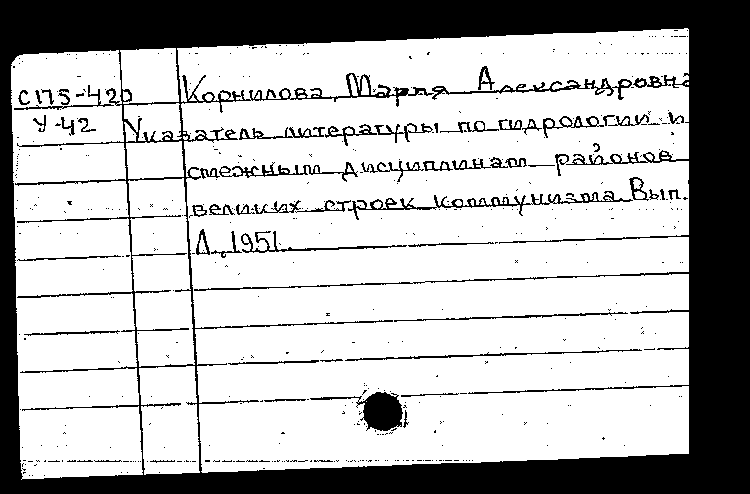 С175-420 Корнилова, Мария Александровна
У-42 Указатель литературы по гидрологии и
смежным дисциплинам районов
великих строек коммунизма. Вып.
Л., 1951.